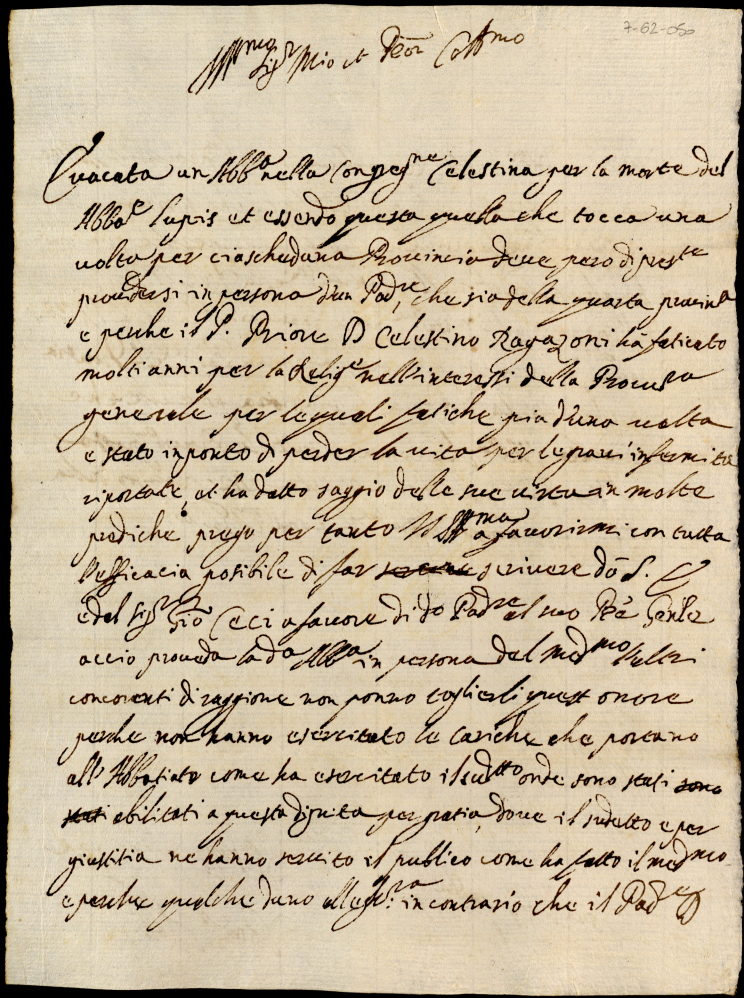 7-62-050
Ill.mo Sig.r Mio et Pron Coll.mo
E vacata un Abb.a nella Congreg.ne Celestina per la morte del
Abba.e Lupis et essendo questa quella che tocca una
volta per ciascheduna Provincia deve pero di pres.te
provedersi in persona d'un Padre, che sia della quarta provin.a
e perche il P. Priore D Celestino Ragazoni ha faticato
molti anni per la Relig.e nell'interessi della Procura
generale per le quali fatiche piu d'una volta
e stato in ponto di perder la vita per le gravi infermita
riportate, et ha datto saggio delle sue virtu in molte
prediche prego per tanto V S Ill.ma a favorirmi con tutta
l'efficacia posibile di far scrivere da S. E
e del Sig.r Gio Ceci a favore di do Padre al suo Pre Gen.le
accio proveda la da Abb.a in persona del med.mo l'altri
concorenti di raggione non ponno toglierli quest onore
perche non hanno esercitato le cariche che portano
all'Abbatiato come ha esercitato il sud.tto onde sono stati sono
stati abilitati a questa dignita per gratia, dove il sudetto e per
giustitia ne hanno servito il publico come ha fatto il med.mo
e perche qualche duno alleg.ra in contrario che il Padre D